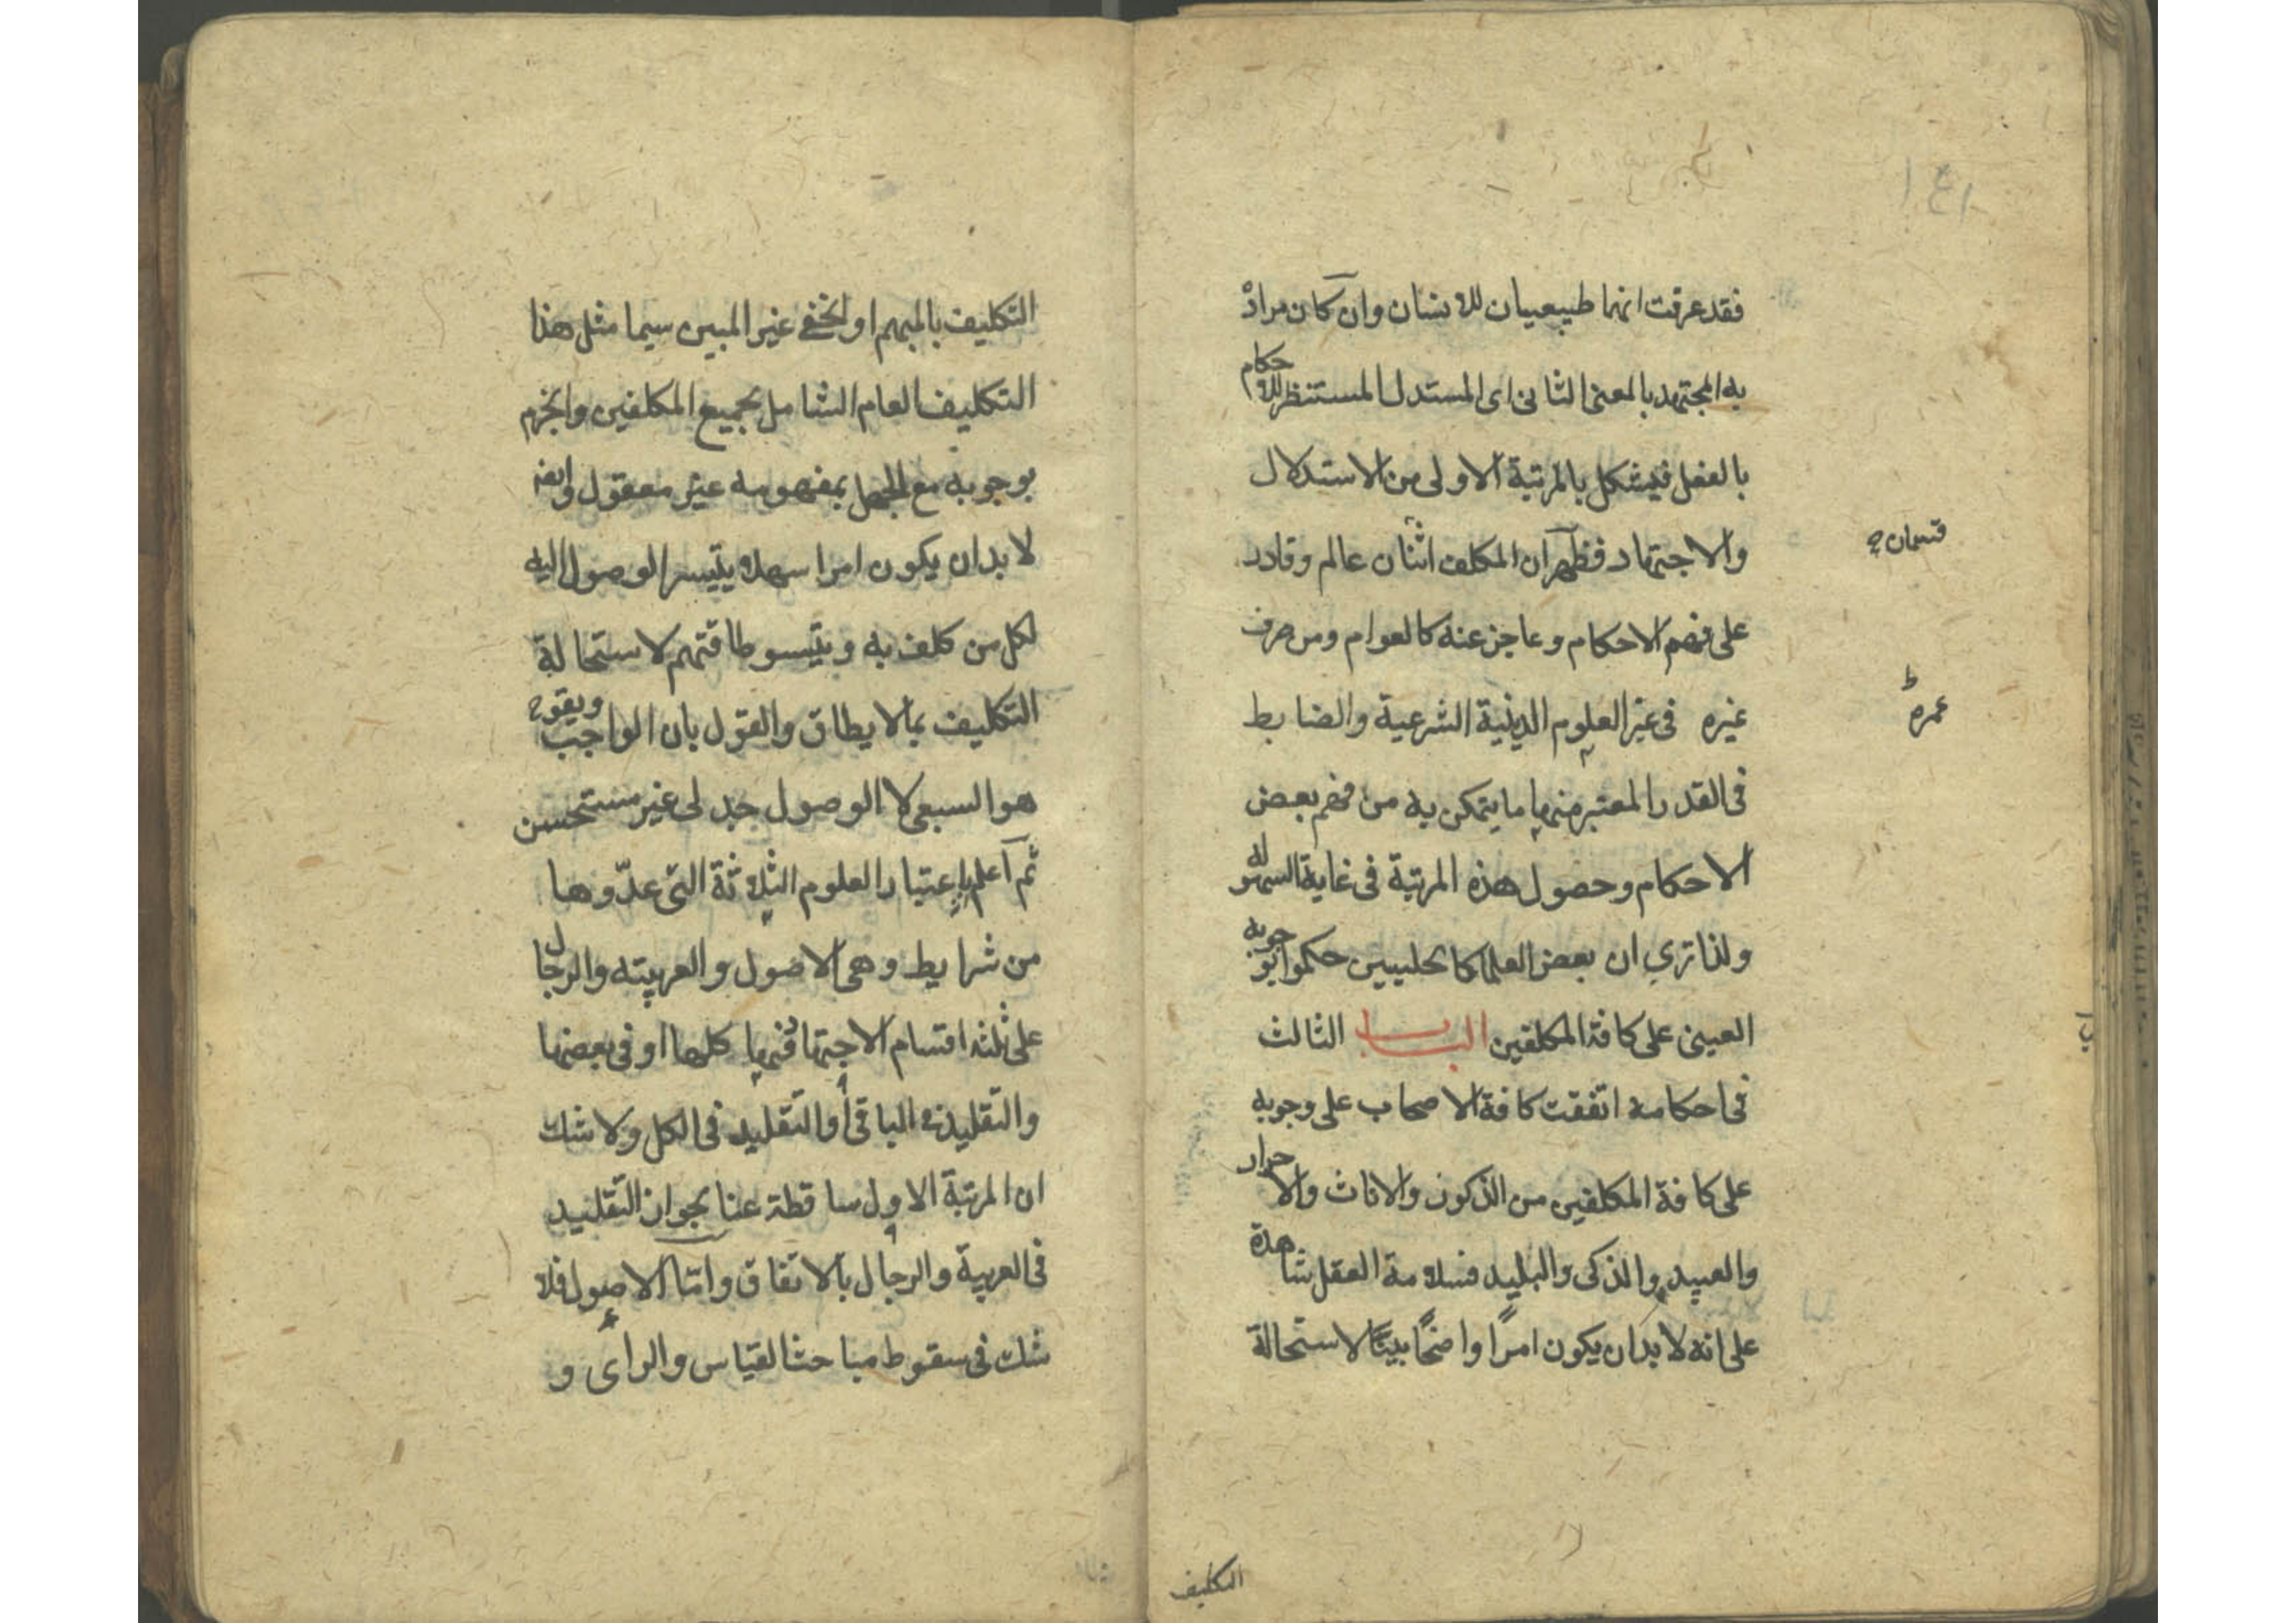 ١٤١
فقد عرفت انهما طبيعيان للانسان وان كان مراد
به المجتهد بالمعنى الثانى اى المستدل المستنظر للاحكام
بالفعل فيشكل بالمرتبة الاولى من الاستدلال
والاجتهاد فظهر ان المكلف اثنان عالم وقادر
قسمان
على فهم الاحكام وعاجز عنه كالعوام ومن صرف
غيره فى غير العلوم الدينية الشرعية والضابط
عمره
فى القدر المعتبر منها ما يتمكن به من فهم بعض
الاحكام وحصول هذه المرتبة فى غاية السهولة
ولذا ترى ان بعض العلما كالحلبيين حكموا بوجوبه
العينى على كافة المكلفين الباب الثالث
فى احكامه اتفقت كافة الاصحاب على وجوبه
على كافة المكلفين من الذكور والاناث والاحرار
والعبيد والذكى والبليد فسلامة العقل شاهدة
على انه لا بد ان يكون امرًا واضحًا بينًا لاستحالة
التكليف
التكليف بالمبهم او الخفى غير المبين سيما مثل هذا
التكليف العام الشامل لجميع المكلفين والجزم
بوجوبه مع الجهل بمفهومه غير معقول وايضا
لا بد ان يكون امرا سهلا يتيسر الوصول اليه
لكل من كلف به ويتيسر طاقتهم لاستحالة
التكليف بما لا يطاق والقول بان الواجب
هو السعى لا الوصول جدلى غير مستحسن
ثم اعلم باعتبار العلوم الثلاثة التى عدّوها
من شرايط وهى الاصول والعربيته والرجال
على ثلثه اقسام الاجتهاد فيها كلها او فى بعضها
والتقليد فى الباقى أو التقليد فى الكل ولا شك
ان المرتبة الاول ساقطة عنا بجواز التقليد
فى العربية والرجال بالاتفاق وامّا الاصول فلا
شك فى سقوط مباحث القياس والراى و